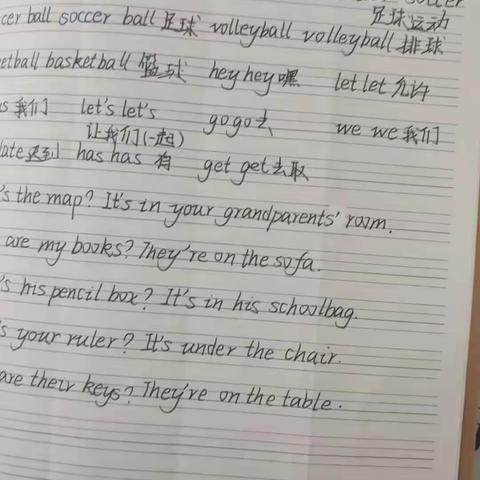 soccer
足球运动
cer ball soccer ball 足球 volleyball volleyball 排球
etball basketball 篮球 hey hey 嘿 let let 允许
s 我们 let's let's go go 去 we we 我们
让我们(一起)
late 迟到 has has 有 get get 去取
's the map? It's in your grandparents' room.
are my books? They're on the sofa.
's his pencil box? It's in his schoolbag.
's your ruler? It's under the chair.
are their keys? They're on the table.